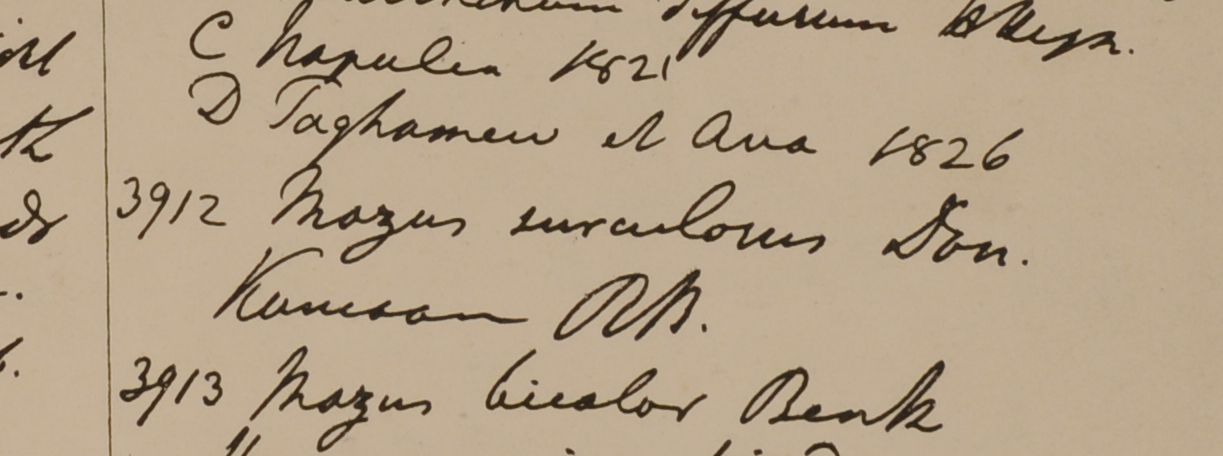 diffusum
C Napulia 1821
D Taghamew et Ava 1826
3912 Mazus surculosus Don.
Kumaon RB.
3913 Mazus bicolor Benth